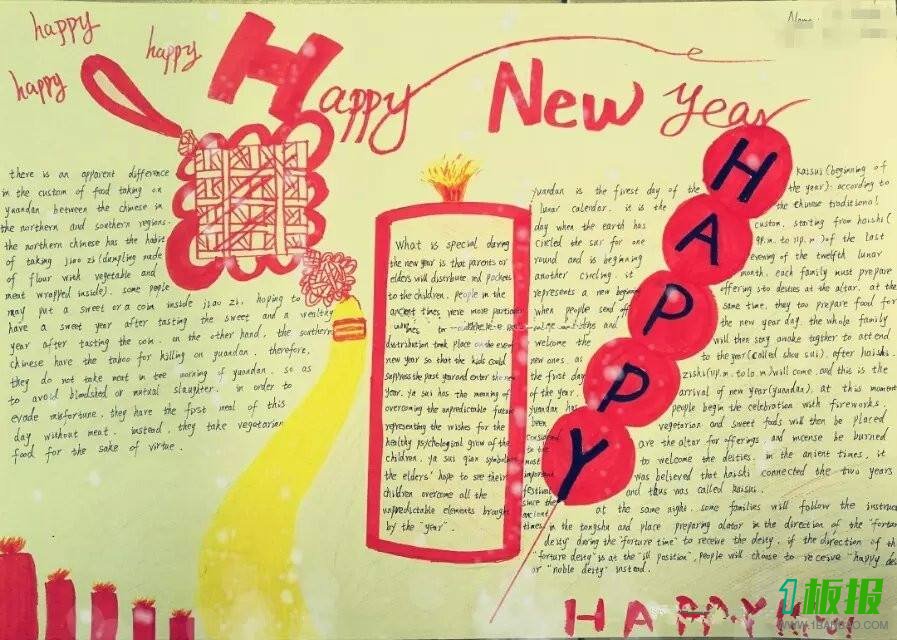 happy
happy
happy
Name:
Happy New Year
there is an apparent difference
in the custom of food taking on
yuandan between the chinese in
the northern and southern regions.
the northern chinese has the habit
of taking jiao zi (dumpling made
of flour with vegetable and
meat wrapped inside). some people
may put a sweet or a coin inside jiao zi, hoping to
have a sweet year after tasting the sweet and a wealthy
year after tasting the coin. on the other hand, the southern
chinese have the taboo for killing on yuandan. therefore,
they do not take meat in the morning of yuandan, so as
to avoid bloodshed or mutual slaughter, in order to
evade misfortune. they have the first meal of this
day without meat. instead, they take vegetarian
food for the sake of virtue.
What is special during
the new year is that parents or
elders will distribute red pockets
to the children. people in the
ancient times were more particular
distribution took place on the even
new year so that the kids could
suppress the past year and enter the new
year. ya sui has the meaning of
overcoming the unpredictable future
representing the wishes for the
healthy psychological grow of the
children. ya sui qian symbolize
the elders' hope to see their
children overcome all the
unpredictable elements brought
by the "year".
yuandan is the first day of the
lunar calendar. it is the
day when the earth has
circled the sur for one
round and is beginning
another circling. it
represents a new beginning
when people send off
welcome the
new ones. as
the first day
of the year.
yuandan has
been
considered
to the
most
important
festival
since the
ancient
times
HAPPY
kaisui (beginning of
the year). according to
the chinese traditional
custom, starting from haishi (
9p.m. to 11p.m.) of the last
evening of the twelfth lunar
month, each family must prepare
offering sto deities at the altar. at the
same time, they too prepare food for
the new year day. the whole family
will then stay awake togther to attend
to the year (called shou sui). after haishi,
zishi (11p.m. to 1a.m) will come. and this is the
arrival of new year (yuandan). at this moment
people begin the celebration with fireworks.
vegetarian and sweet foods will then be placed
are the altar for offerings and incense be burned
to welcome the deities. in the ancient times, it
was believed that haishi connected the two years
and thus was called kaisui.
at the same night. some families will follow the instruct
in the tongshu and place preparing alator in the direction of the "fortune
deity" during the "fortune time" to receive the deity. if the direction of the
"fortune deity" is at the "ill position", people will choose to receive "happy dei
or "noble deity" instead.
HAPPY
1板报
WWW.1BANBAO.COM